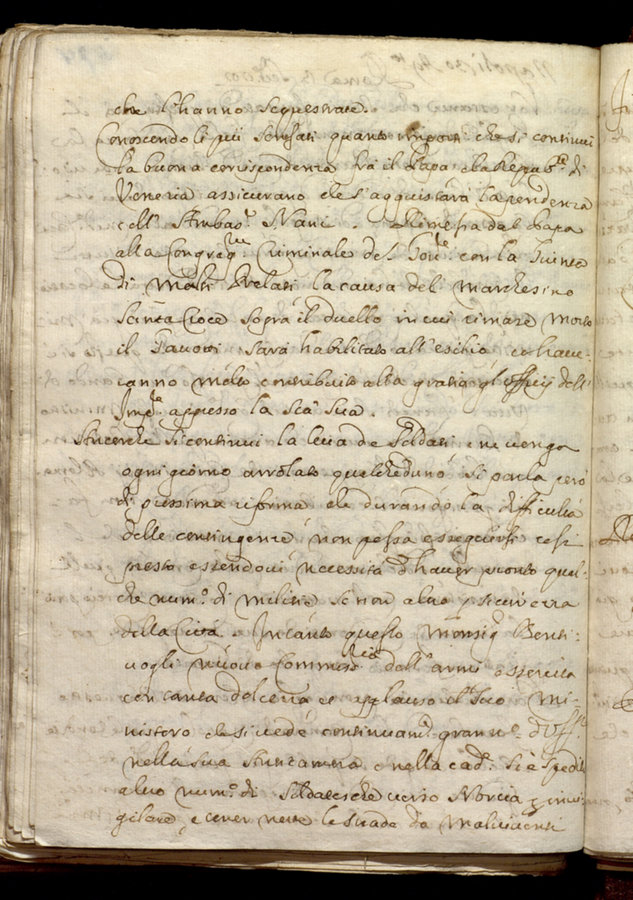 che l'hanno sequestrate.
Conoscendo li più sensati quanto importi che si continui
la buona corrispondenza frà il Papa, e la Repub.ca di
Venetia assicurano che s'aggiustarà la pendenza
coll' Ambas.r Nani. Rimessa dal Papa
alla Congreg.ne Criminale del Gov.e con la Giunta
di molti Prelati la causa del Marchesino
Santa Croce sopra il duello in cui rimase morto
il sarà habilitato all'esilio, e
ranno molto contribuito alla gratia gl'ufficij dell'
Imp.e appresso la S.tà Sua.
Ancorche si continui la leva de Soldati, e ne venga
ogni giorno arrolato qualcheduno, si parla però
di riforma che durando la difficultà
delle contingenze non possa esseguirsi così
presto essendovi necessità d'haver pronto qual-
che num.o di militie se non altro p sicurezza
della Città. In tanto questo Monsig.r Benti-
vogli nuovo Commiss.rio dell'armi essercita
con tanta dolcezza et applauso il suo Mi-
nistero che si vede continuam.e gran n.o d'Uff.li
nella sua Anticamera, e nella cad. si è spedito
altro num.o di Soldatesche verso Norcia p invi-
gilare, e tener nette le strade da Malviventi